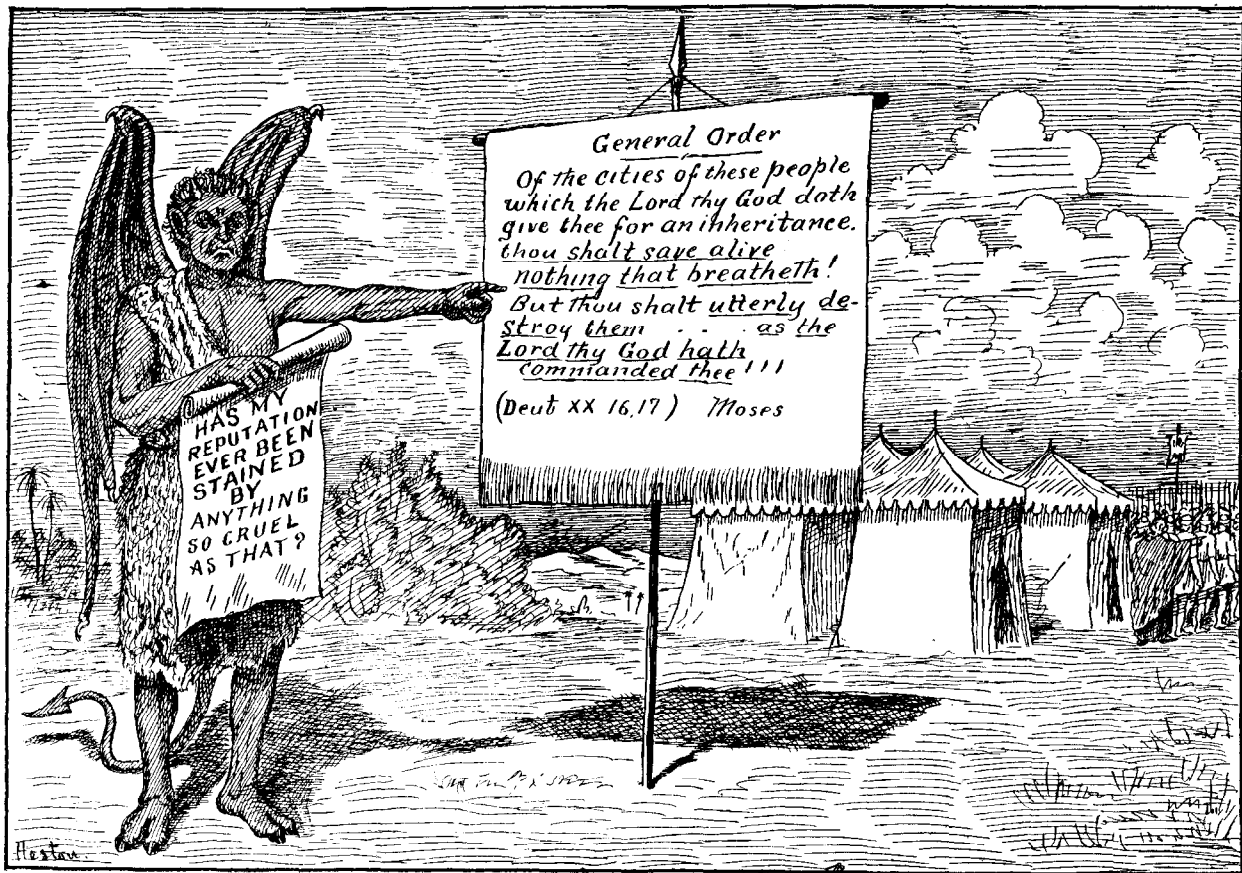 General Order
Of the cities of these people
which the Lord thy God doth
give thee for an inheritance.
thou shalt save alive
nothing that breatheth!
But thou shalt utterly de-
stroy them . . . as the
Lord thy God hath
commanded thee!!!
(Deut XX 16,17) Moses
HAS MY
REPUTATION
EVER BEEN
STAINED
BY
ANYTHING
SO CRUEL
AS THAT?
Heston.